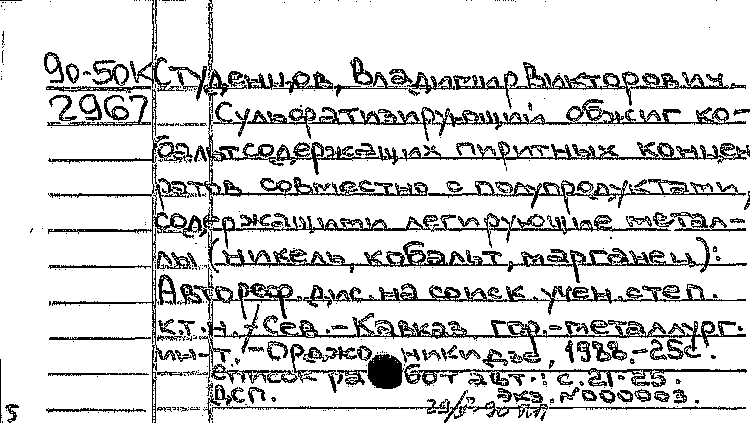 90-50К Студенцов, Владимир Викторович.
2967 Сульфатизирующий обжиг ко-
бальтсодержащих пиритных концен
ратов совместно с полупродуктами,
содержащими легирующие метал-
лы (никель, кобальт, марганец):
Автореф. дис. на соиск. учен. степ.
к.т.н. - Сев.-Кавказ. гор.-металлург.
ин-т. - Орджоникидзе, 1988. - 25с.
Список работ авт.: с. 21-25.
Дсп. Экз. №000003.
5